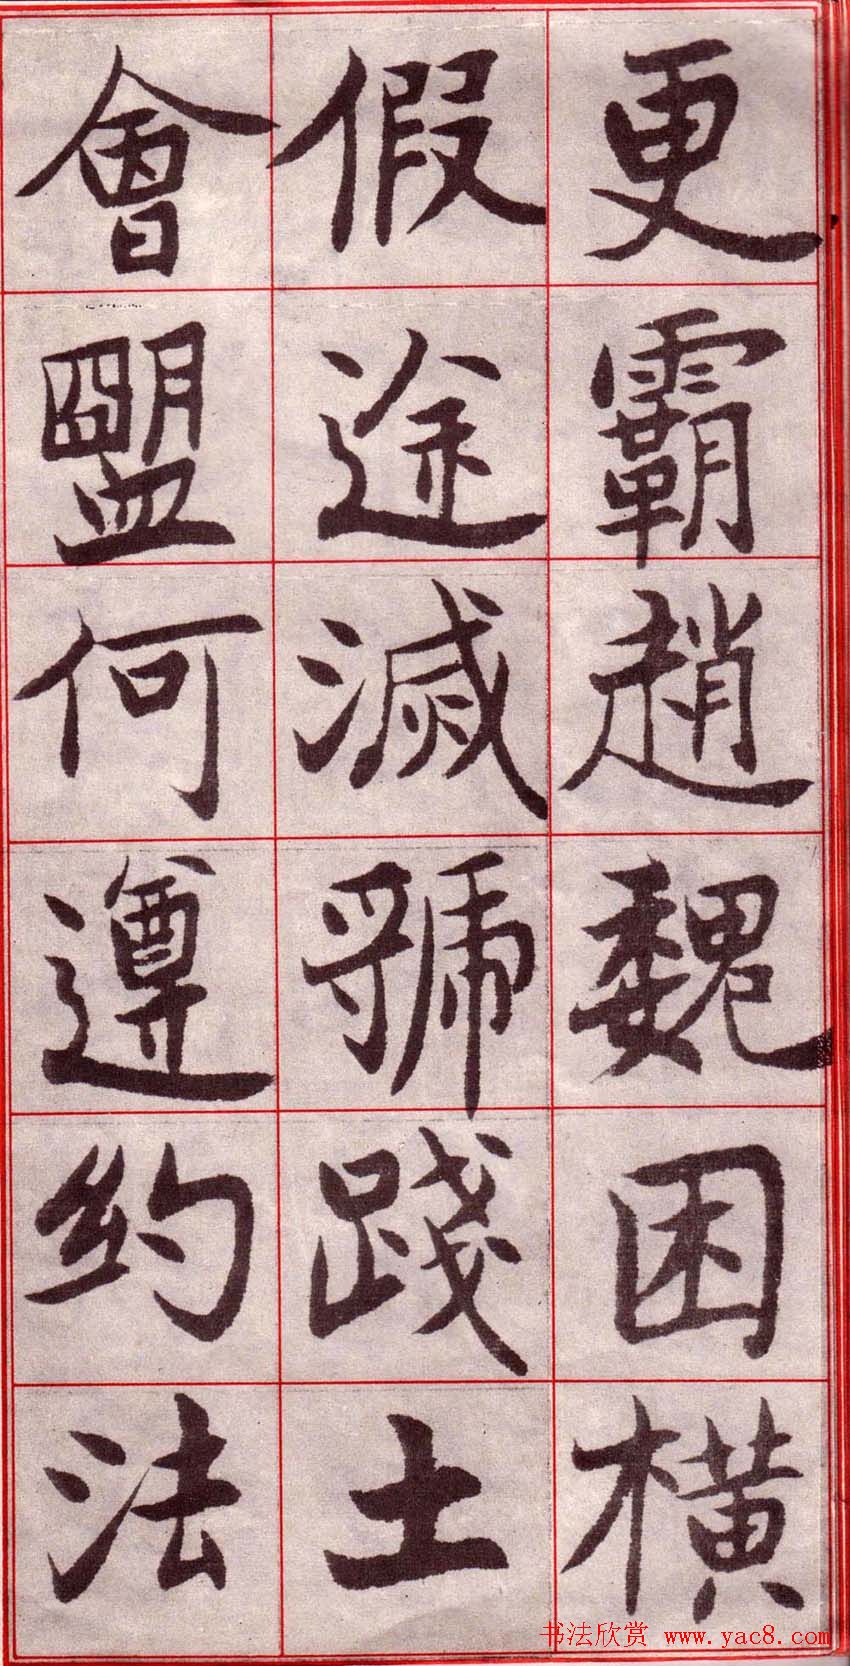 更霸趙魏困橫
假途滅虢踐土
會盟何遵約法
书法欣赏 www.yac8.com